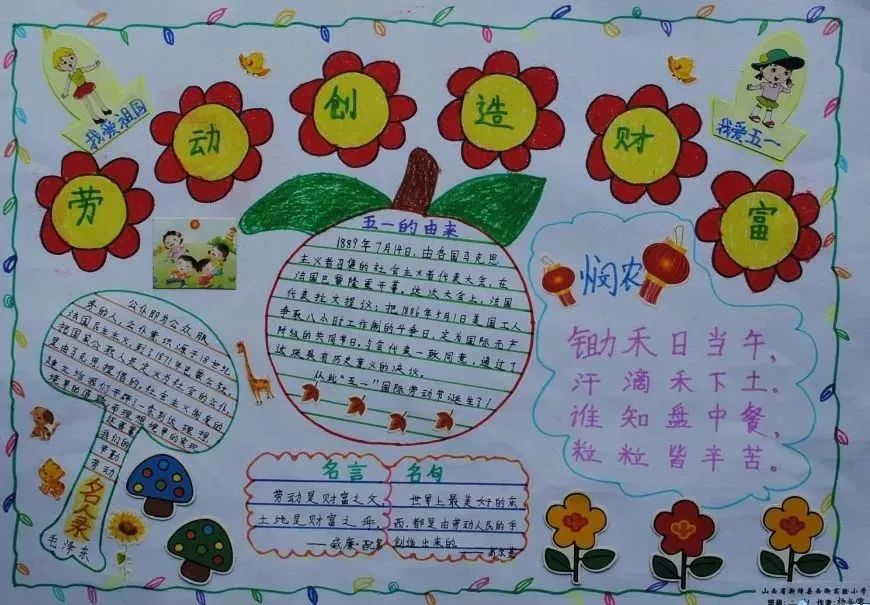 我爱祖国
我爱五一
劳动创造财富
五一的由来
1889年7月14日,由各国马克思
主义者召集的社会主义者代表大会,在
法国巴黎隆重开幕。这次大会上,法国
代表拉文提议:把1886年5月1日美国工人
争取八小时工作制的斗争日,定为国际无产
阶级的共同节日。与会代表一致同意,通过了
这项具有历史意义的决议。
从此"五一"国际劳动节诞生了!
悯农
锄禾日当午,
汗滴禾下土。
谁知盘中餐,
粒粒皆辛苦。
公仆即为公众服
务的人,公仆意识源于18世纪
法国民主主义,到了1871年巴黎公社,
名人录
毛泽东
名言
劳动是财富之父,
土地是财富之母。
——威廉·配第
名句
世界上最美好的东
西,都是由劳动人民的手
创造出来的。
山西省新绛县西街实验小学